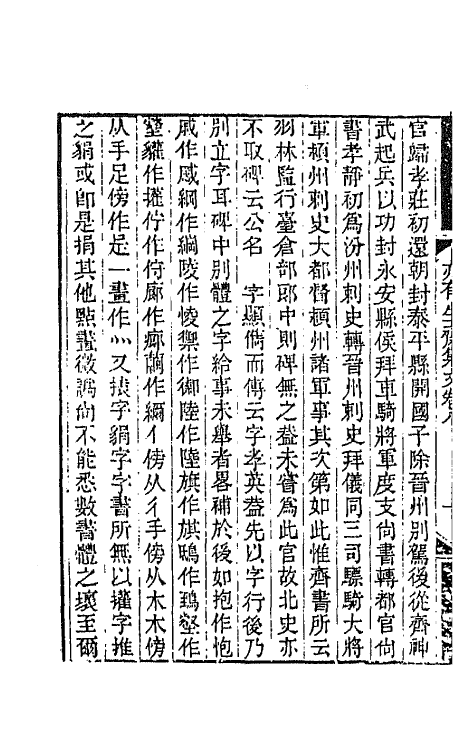 官歸孝莊初還朝封泰平縣開國子除晉州別駕後從齊神
武起兵以功封永安縣侯拜車騎將軍度支尙書轉都官尙
書孝靜初爲汾州刺史轉晉州刺史拜儀同三司驃騎大將
軍潁州刺史大都督潁州諸軍事其次第如此惟齊書所云
羽林監行臺倉部郎中則碑無之葢未嘗爲此官故北史亦
不取碑云公名　字顯儁而傳云字孝英葢先以字行後乃
別立字耳碑中別體之字給事未舉者畧補於後如抱作怉
戚作慼綱作䌉陵作悛禦作御陸作陸旗作旗鴟作鵄壑作
壑貛作㩲佇作侍廊作廊繭作繭亻傍从彳手傍从木木傍
从手足傍作𧾷一畫作灬又㨗字䝓字字書所無以㩲字推
之䝓或卽是捐其他點畫微譌尙不能悉數書體之壞至爾
亦有生齋集文卷八